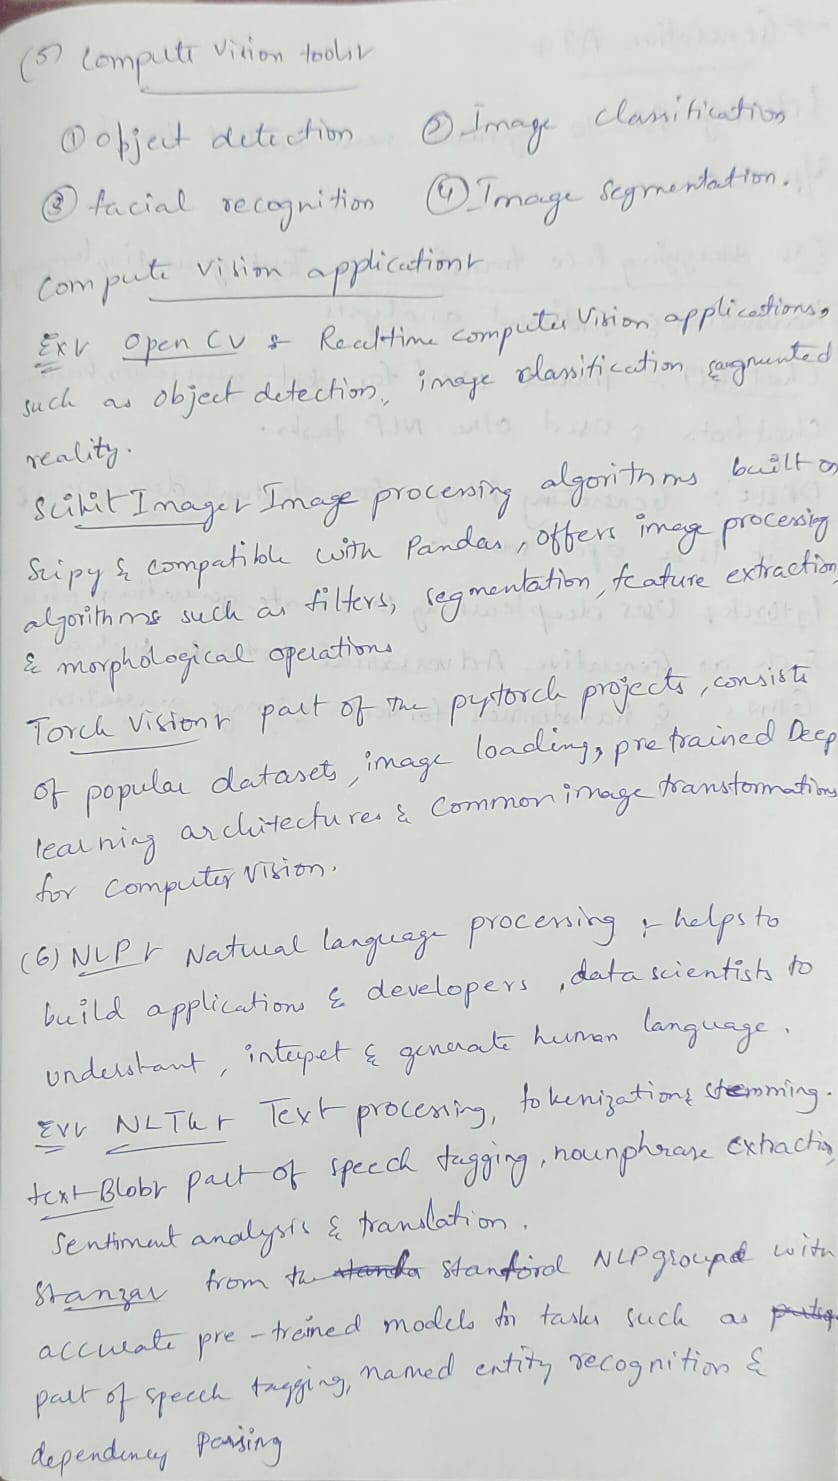 (5) Compute Vision tools:-
① Object detection ② Image classification
③ facial recognition ④ Image Segmentation.
Compute Vision applications:-
Ex:- Open CV :- Real-time computer Vision applications,
such as object detection, image classification & augmented
reality.
Scikit Image:- Image processing algorithms built on
Scipy & compatible with Pandas, offers image processing
algorithms such as filters, segmentation, feature extraction
& morphological operations
Torch Vision:- part of the pytorch projects, consists
of popular datasets, image loading, pretrained Deep
learning architectures & Common image transformations
for Computer Vision.
(6) NLP:- Natural language processing :- helps to
build applications & developers, data scientists to
understant, intepet & generate human language.
Ex:- NLTK:- Text processing, tokenization & stemming.
text Blob:- part of speech tagging, noun phrase extraction
Sentiment analysis & translation.
Stanza:- from the Stanford NLP grouped with
accurate pre-trained models for tasks such as
part of speech tagging, named entity recognition &
dependency parsing